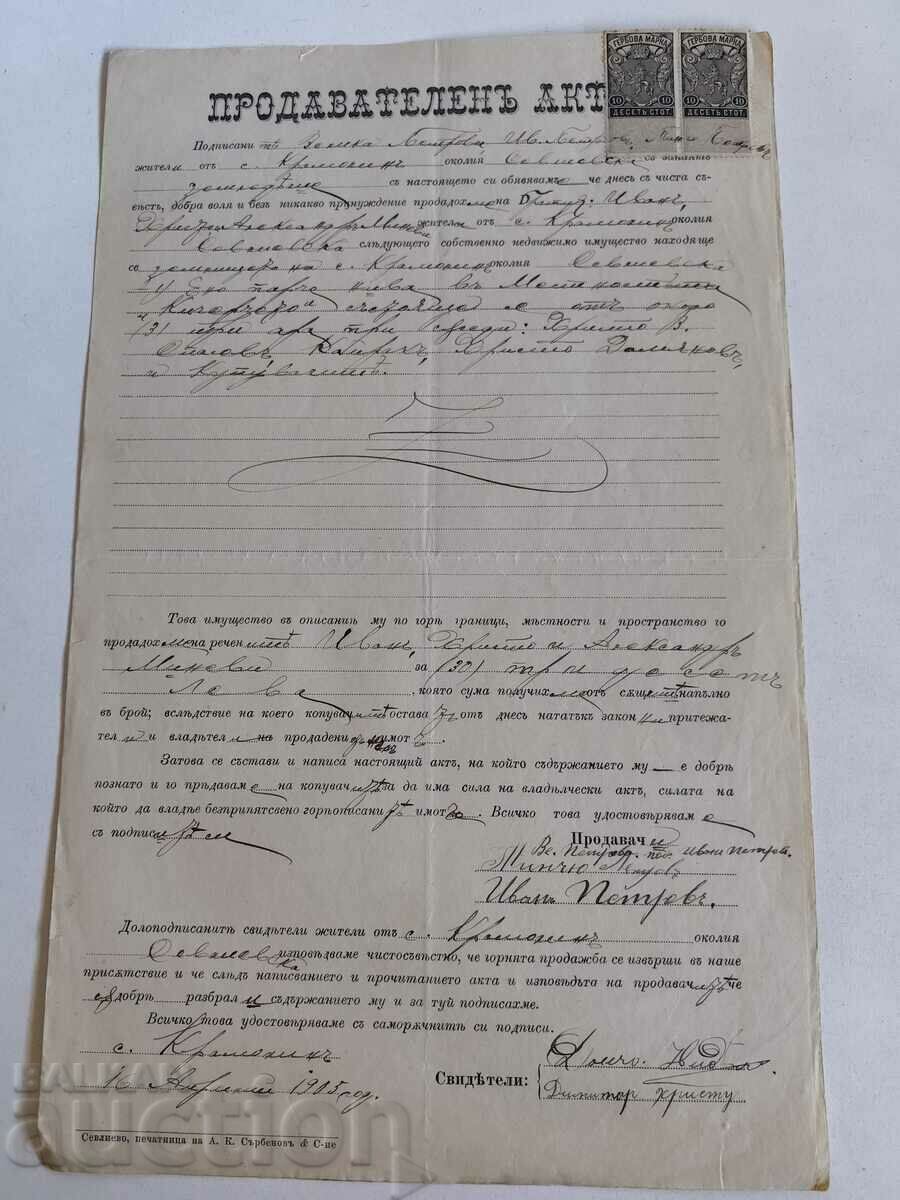 ГЕРБОВА МАРКА ГЕРБОВА МАРКА
10 10 10 10
ДЕСЕТЬ СТОТ. ДЕСЕТЬ СТОТ.
ПРОДАВАТЕЛЕНЪ АКТ
Подписани тѣ Велика Петрова Ив. Петровъ,
жители отъ с. Крамолинъ околия Севлиевска
съ настоящето си обявяваме че днесъ съ чиста съ-
вѣсть, добра воля и безъ никакво принуждение продадохме на Иванъ,
Александръ жители отъ с. Крамолинъ околия
Севлиевска слѣдующего собственно недвижимо имущество находяще
се на с. Крамолинъ околия Севлиевска
1/ Едно парче нива въ местностьта
състояща се отъ около
(3) три ара при съседи: Христо В.
Христо
и Купувачитѣ.
Това имущество въ описанитѣ му по горѣ граници, мѣстности и пространство го
продадохме на речен итѣ Иванъ, Христо и Александръ
Миневи за (30) тридесеть
Лева, която сума получихме отъ сѫщитѣ напълно
въ брой; вслѣдствие на което копувачитѣ остава отъ днесъ нататъкъ закон ни притежа-
тел и и владѣтел и на продадени имот
Затова се състави и написа настоящий актъ, на който съдържанието му — е добрѣ
познато и го прѣдаваме на копувачитѣ за да има сила на владѣлчески актъ, силата на
който да владѣе безпрпятсвено горѣописани имот Всичко това удостовѣрявам е
съ подписитѣ си
Продавачи
Ве. Петрова. Ивани Петрова.
Минчю
Иванъ Петровъ.
Долоподписанитѣ свидѣтели жители отъ с. Крамолинъ околия
Севлиевска изповѣдваме чистосъвѣстно, че горнята продажба се извърши въ наше
присѫтствие и че слѣдъ написванието и прочитанието акта и изповѣдьта на продавачитѣ че
съ добрѣ разбрали съдържанието му и за туй подписахме.
Всичко това удостовѣряваме съ саморѫчнитѣ си подписи.
с. Крамолинъ
16 Априлий 1905 год.
Свидѣтели:
Димитор христу
Севлиево, печатница на А. К. Сърбеновъ & С-ие
БАЛКАН
auction